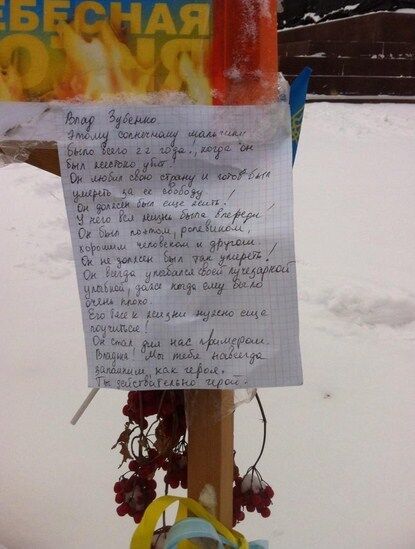 ЕБЕСНАЯ
Влад Зубенко
Этому солнечному мальчику
было всего 22 года, когда он
был жестоко убит.
Он любил свою страну и готов был
умереть за ее свободу.
Он должен был еще жить!
У него вся жизнь была впереди!
Он был поэтом, ролевиком,
хорошим человеком и другом.
Он не должен был так умереть!
Он всегда улыбался своей лучезарной
улыбкой, даже когда ему было
очень плохо.
Его жизни нужно еще
поучиться!
Он стал для нас примером.
Владка! Мы тебя навсегда
запомним, как героя.
Ты действительно герой!